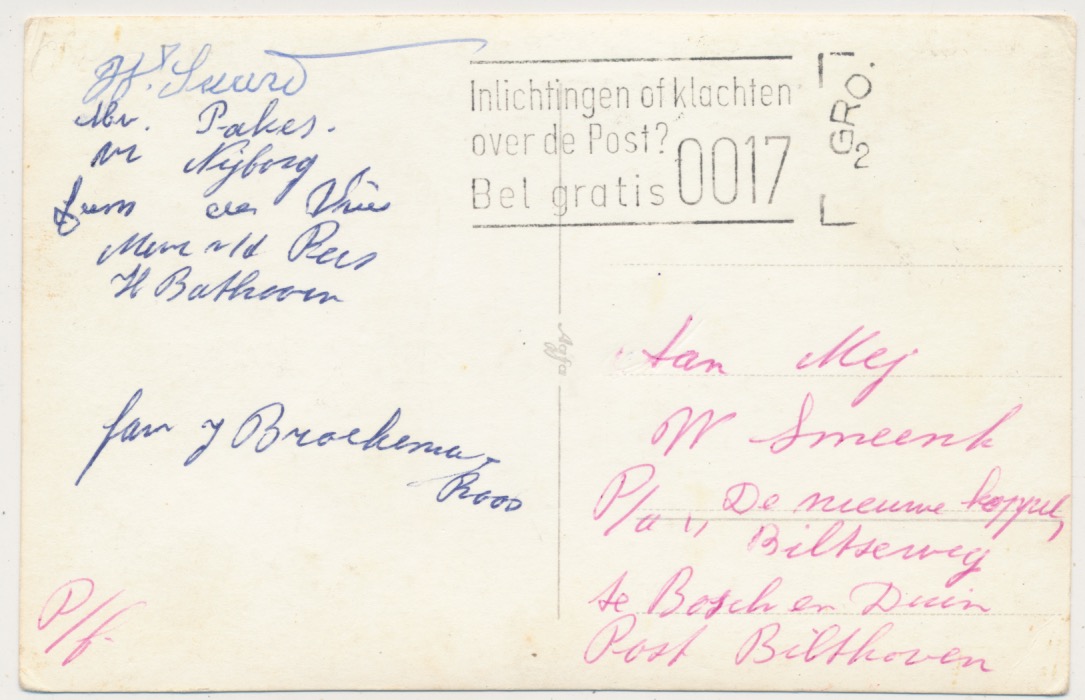 Mw. Pakes.
Nijborg
de Vries
Mevr v/d
H Bathoven
fam J Broekema
Roos
P/f
Inlichtingen of klachten
over de Post?
Bel gratis 0017
GRO.
2
Agfa
Aan Mej
W Smeenk
P/a „ De nieuwe koppel,
Biltseweg
te Bosch en Duin
Post Bilthoven